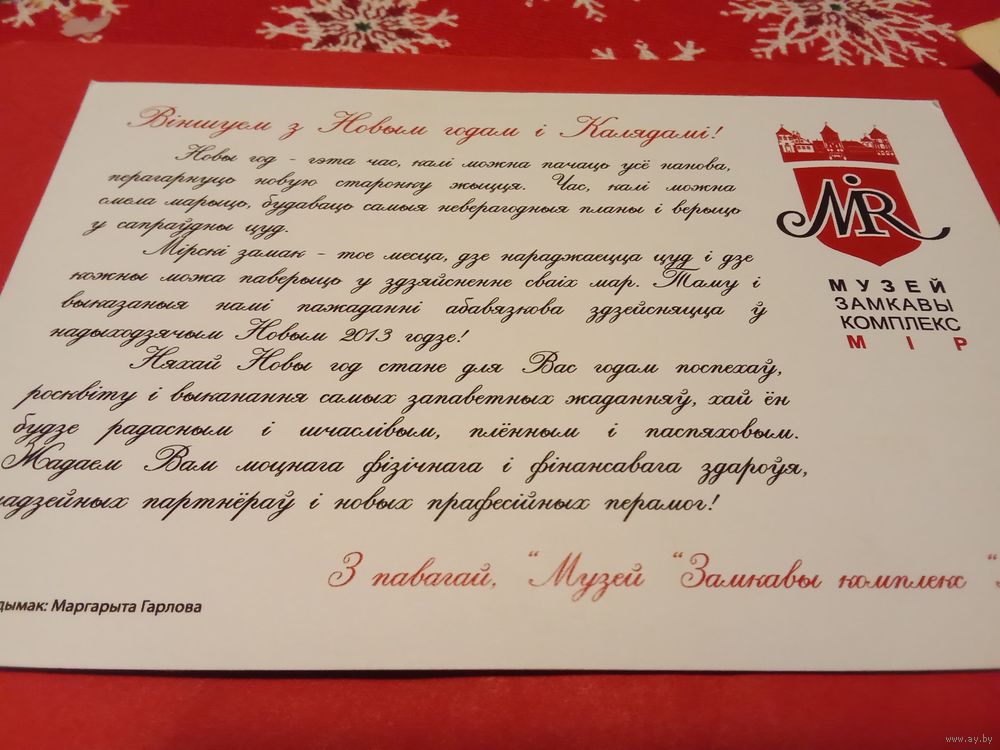 Віншуем з Новым годам і Калядамі!
Новы год - гэта час, калі можна пачаць усё нанова,
перагарнуць новую старонку жыцця. Час, калі можна
смела марыць, будаваць самыя неверагодныя планы і верыць
у сапраўдны цуд.
Мірскі замак - тое месца, дзе нараджаецца цуд і дзе
кожны можа паверыць у здзяйсненне сваіх мар. Таму і
выказаныя намі пажаданні абавязкова здзейсняцца ў
надыходзячым Новым 2013 годзе!
Няхай Новы год стане для Вас годам поспехаў,
росквіту і выканання самых запаветных жаданняў, хай ён
будзе радасным і шчаслівым, плённым і паспяховым.
Жадаем Вам моцнага фізічнага і фінансавага здароўя,
надзейных партнёраў і новых прафесійных перамог!
З павагай, "Музей "Замкавы комплекс "
дымак: Маргарыта Гарлова
MİR
МУЗЕЙ
ЗАМКАВЫ
КОМПЛЕКС
МІР
www.ay.by